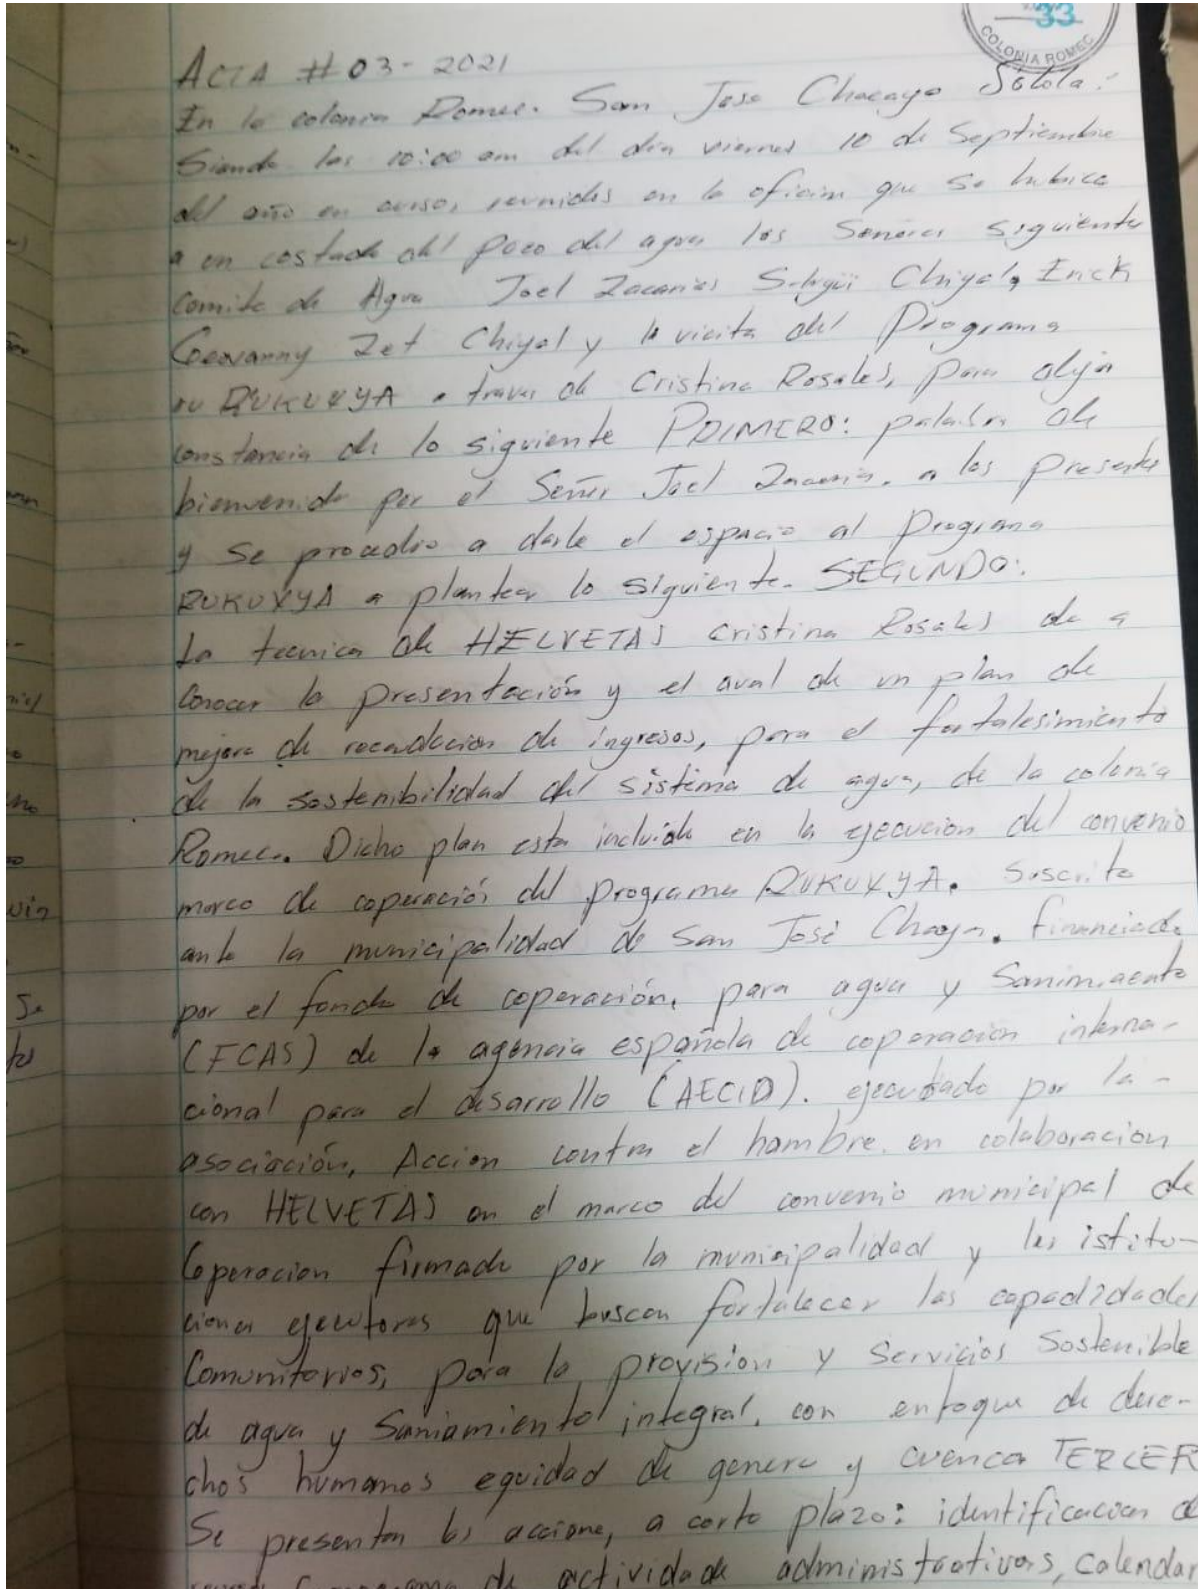 33
COLONIA ROMEC
ACTA # 03 - 2021
En la colonia Romec. San Jose Chacaya Sololá.
Siendo las 10:00 am del dia viernes 10 de Septiembre
del año en curso, reunidos en la oficina que se hubica
a un costado del pozo del agua los Señores Siguiente
comite de Agua Joel Zacarias Chiyal, Erick
Geovanny Zet Chiyal y la vicita del Programa
RUKUXYA a traves de Cristina Rosales, para dejar
constancia de lo siguiente PRIMERO: palabra de
bienvenida por el Señor Joel Zacaria. a los presente
y se procedio a darle el espacio al programa
RUKUXYA a plantear lo siguiente. SEGUNDO:
La tecnica de HELVETAS Cristina Rosales de a
conocer la presentación y el aval de un plan de
mejora de recaudacion de ingresos, para el fortalesimiento
de la sostenibilidad del sistema de agua, de la colonia
Romec. Dicho plan esta incluido en la ejecucion del convenio
marco de coperación del programa RUKUXYA. Suscrito
ante la municipalidad de San José Chaya. financiado
por el fondo de coperación, para agua y
(FCAS) de la agencia española de coperacion interna-
cional para el desarrollo (AECID). ejecutado por la -
asociación, Accion contra el hambre. en colaboracion
con HELVETAS en el marco del convenio municipal de
Coperacion firmado por la municipalidad y las istitu-
ciones ejecutores que buscan fortalecer las
Comunitarios, para la provision y Servicios Sostenible
de agua y Saniamiento integral. con enfoque de dere-
chos humanos equidad de genero y cuenca TERCER
Se presentan las accione, a corto plazo: identificacion de
de actividade administrativas, calendar